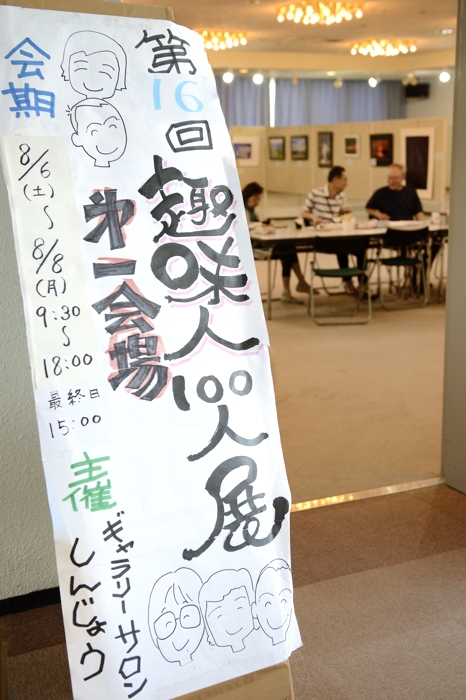 第16回
趣味人100人展
第一会場
会期
8/6
(土)
〜
8/8
(月)
9:30
〜
18:00
最終日
15:00
主催
ギャラリーサロン
しんじょう